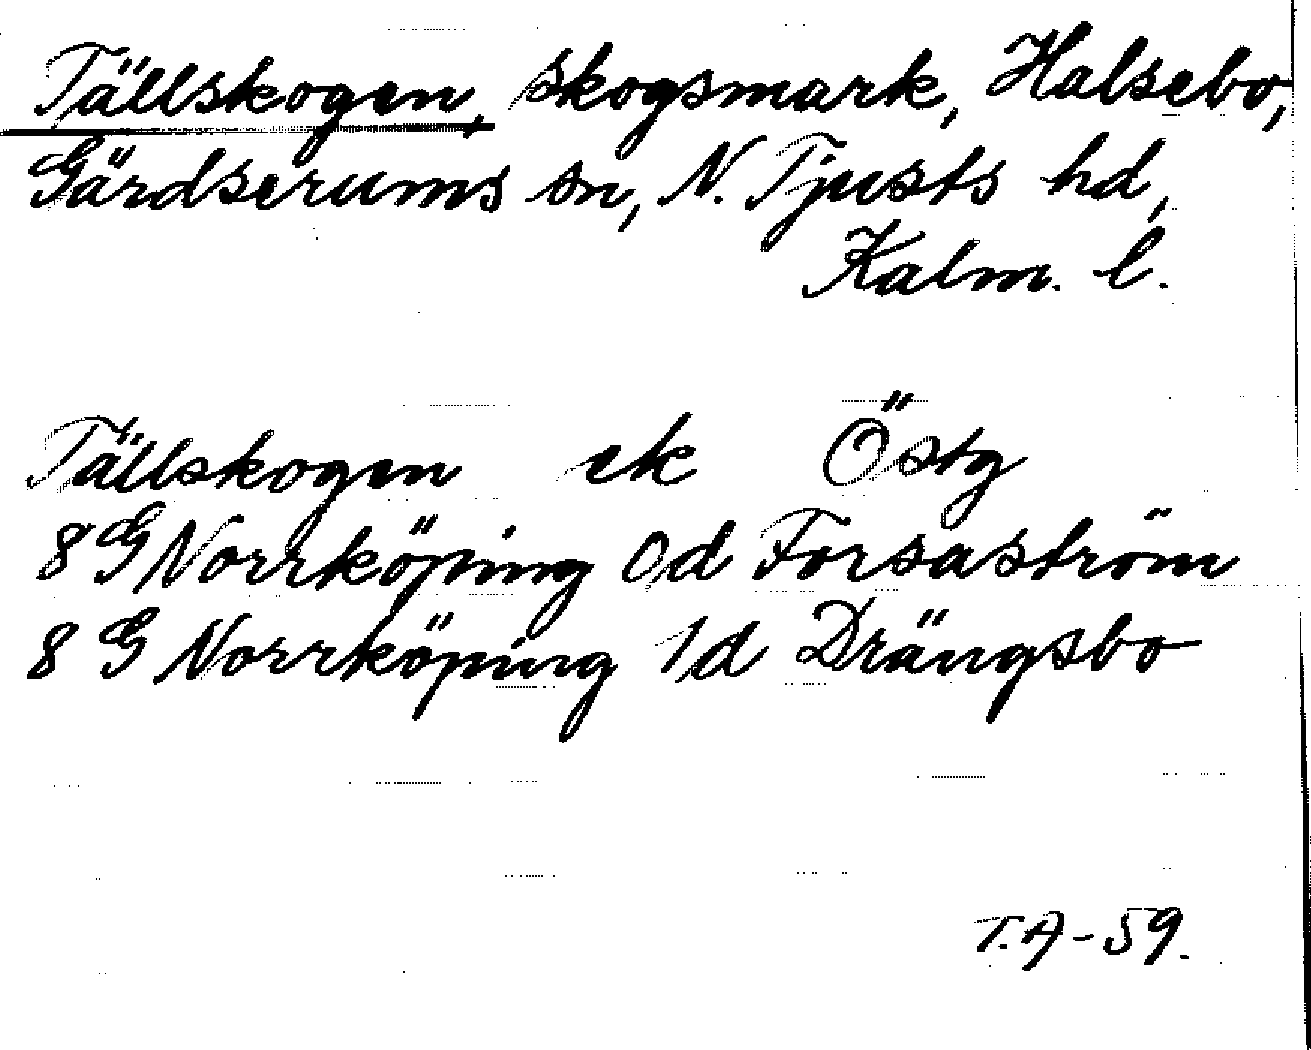 Tällskogen, skogsmark, Halsebo,
Gärdserums sn, N. Tjusts hd,
Kalm. l.
Tällskogen ek Östg
8 G Norrköping 0d Forsaström
8 G Norrköping 1d Drängsbo
T.A-59.